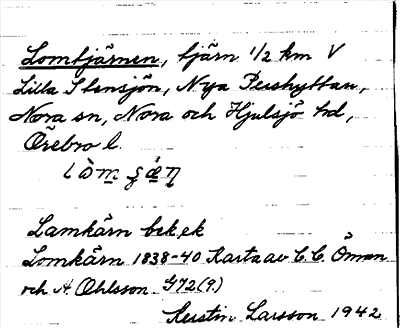 Lomtjärnen, tjärn 1/2 km V
Lilla Stensjön, Nya Pershyttan,
Nora sn, Nora och Hjulsjö hd,
Örebro l.
Lamkärn bek, ek
Lomkärn 1838-40 Karta av C. C. Öman
och A. Ohlsson G72(9.)
Kerstin Larsson 1942